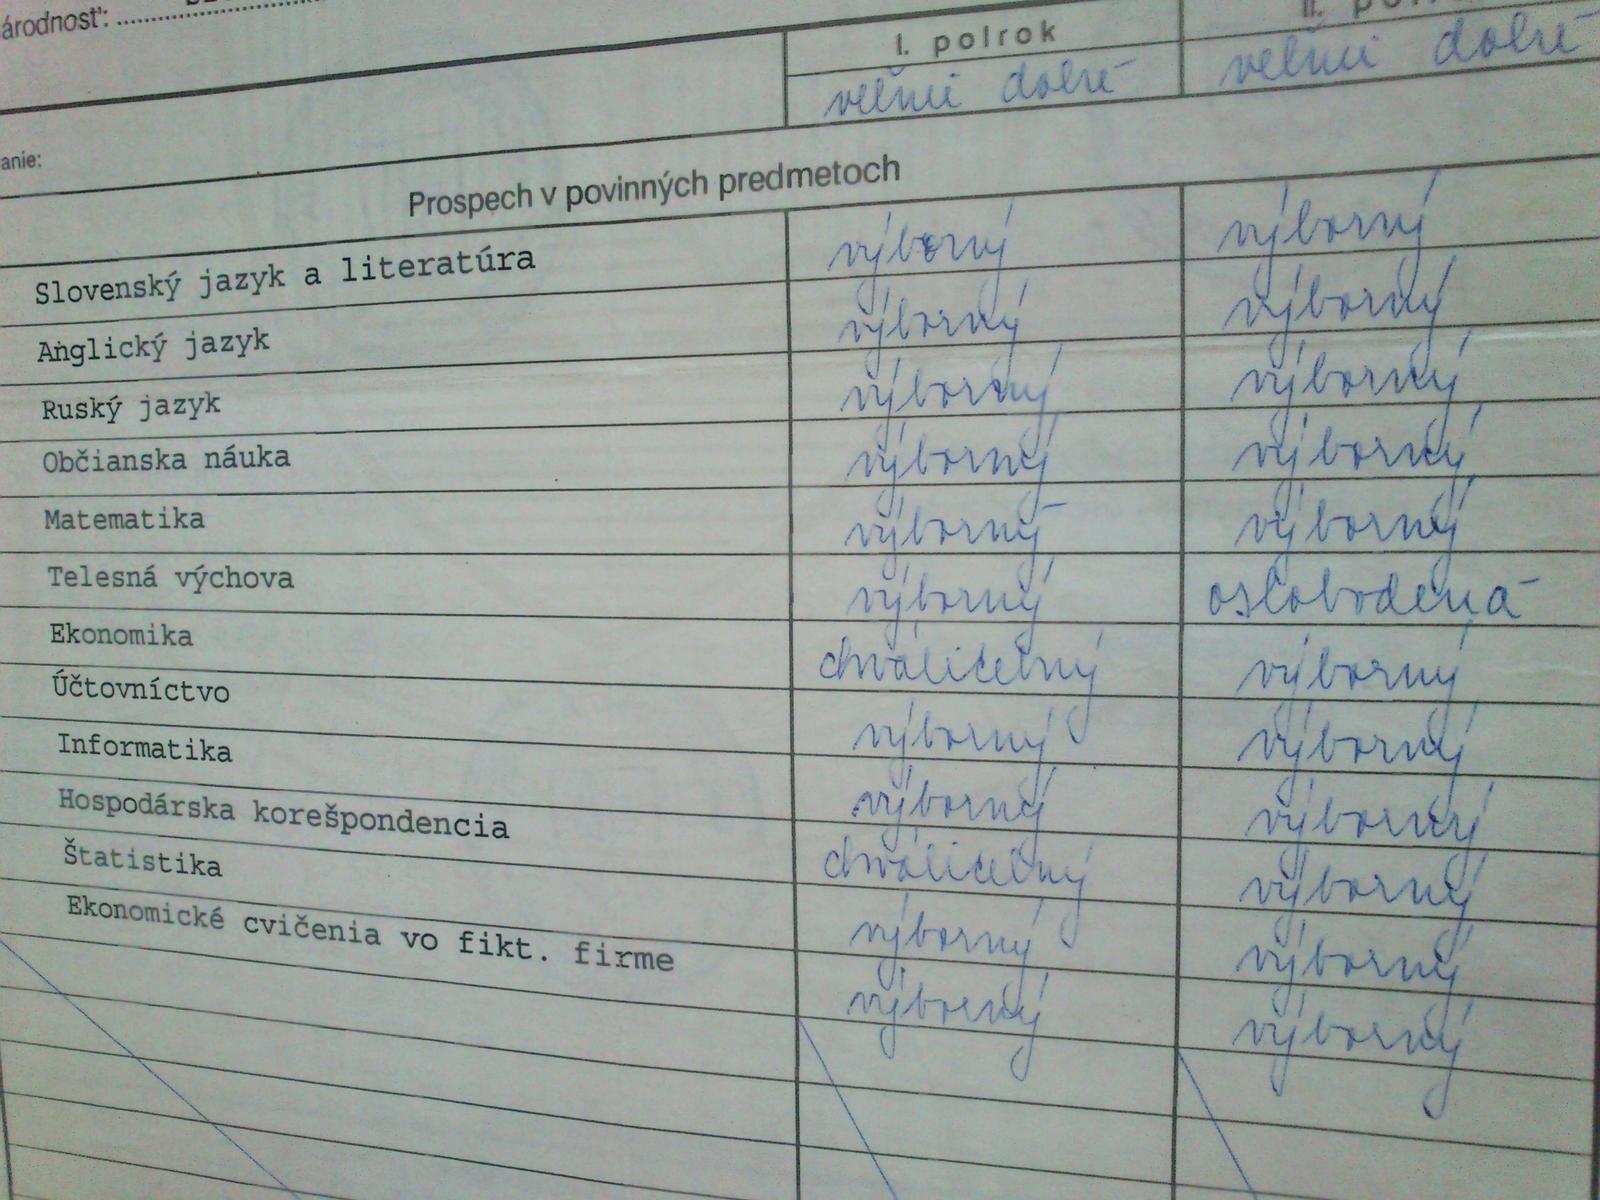 árodnosť:
I. polrok II.
veľmi dobré veľmi dobré
anie:
Prospech v povinných predmetoch
Slovenský jazyk a literatúra výborný výborný
Anglický jazyk výborný výborný
Ruský jazyk výborný výborný
Občianska náuka výborný výborný
Matematika výborný výborný
Telesná výchova výborný oslobodená
Ekonomika chválitebný výborný
Účtovníctvo výborný výborný
Informatika výborný výborný
Hospodárska korešpondencia chválitebný výborný
Štatistika výborný výborný
Ekonomické cvičenia vo fikt. firme výborný výborný